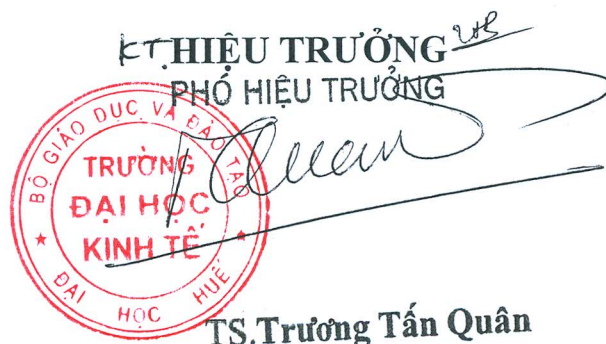 KT.HIỆU TRƯỞNG
PHÓ HIỆU TRƯỞNG
BỘ GIÁO DỤC VÀ ĐÀO TẠO
TRƯỜNG
ĐẠI HỌC
KINH TẾ
★ ĐẠI HỌC HUẾ ★
Quan
TS.Trương Tấn Quân